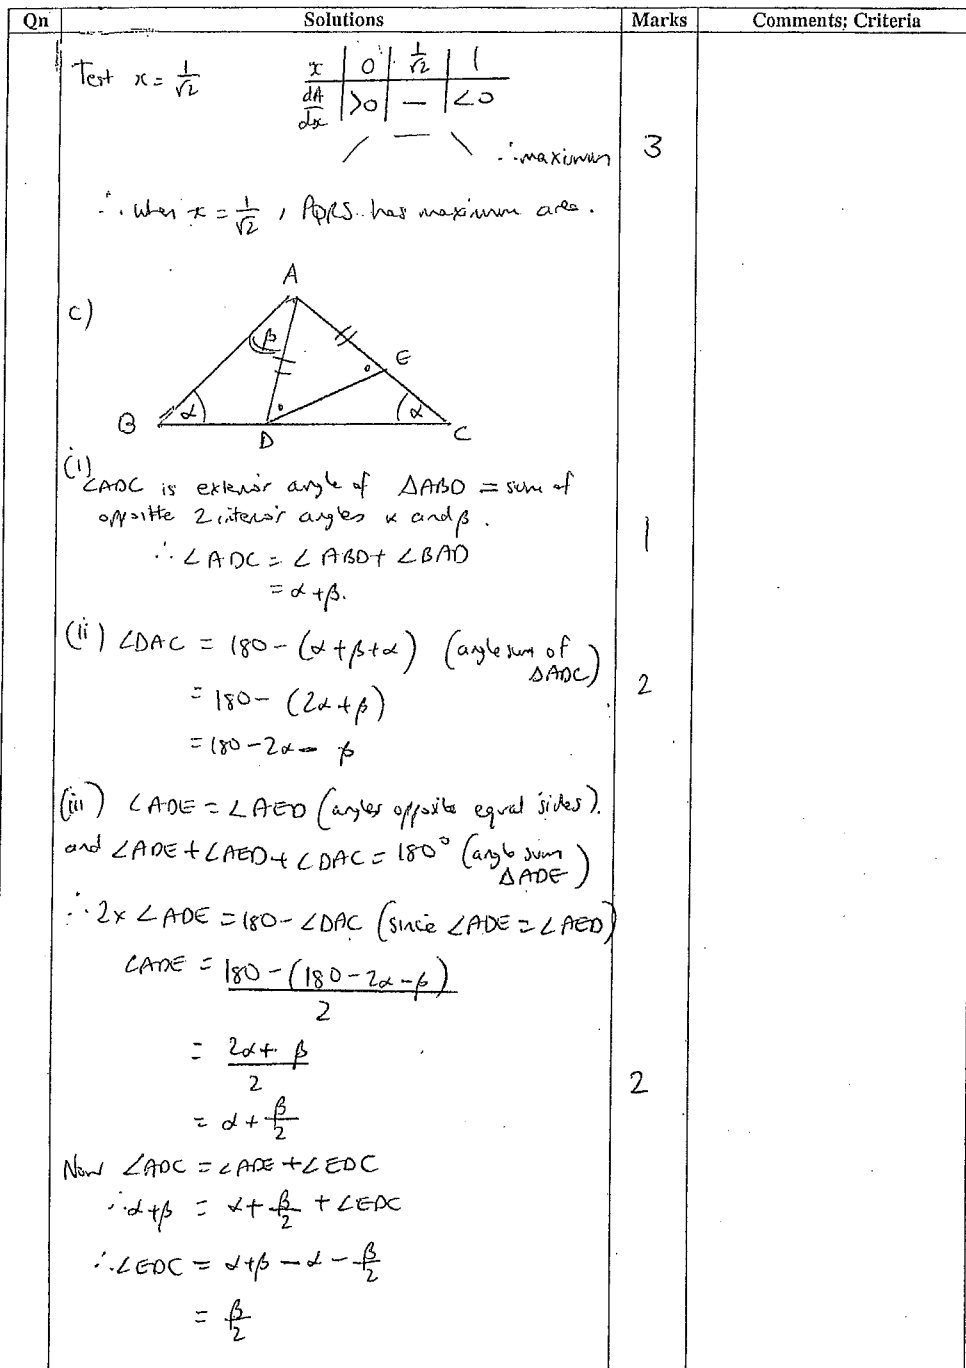 Qn Solutions Marks Comments; Criteria
Test x = 1/√2
x | 0 | 1/√2 | 1
dA/dx | >0 | — | <0
∴ maximum 3
∴ when x = 1/√2, PQRS has maximum area.
c)
A
β
E
B α α C
D
(i) ∠ADC is exterior angle of △ABD = sum of
opposite 2 interior angles α and β.
∴ ∠ADC = ∠ABD + ∠BAD 1
= α + β.
(ii) ∠DAC = 180 - (α + β + α) (angle sum of △ADC) 2
= 180 - (2α + β)
= 180 - 2α - β
(iii) ∠ADE = ∠AED (angles opposite equal sides).
and ∠ADE + ∠AED + ∠DAC = 180° (angle sum △ADE)
∴ 2x ∠ADE = 180 - ∠DAC (since ∠ADE = ∠AED)
∠ADE = (180 - (180 - 2α - β))/2
= (2α + β)/2 2
= α + β/2
Now ∠ADC = ∠ADE + ∠EDC
∴ α + β = α + β/2 + ∠EDC
∴ ∠EDC = α + β - α - β/2
= β/2